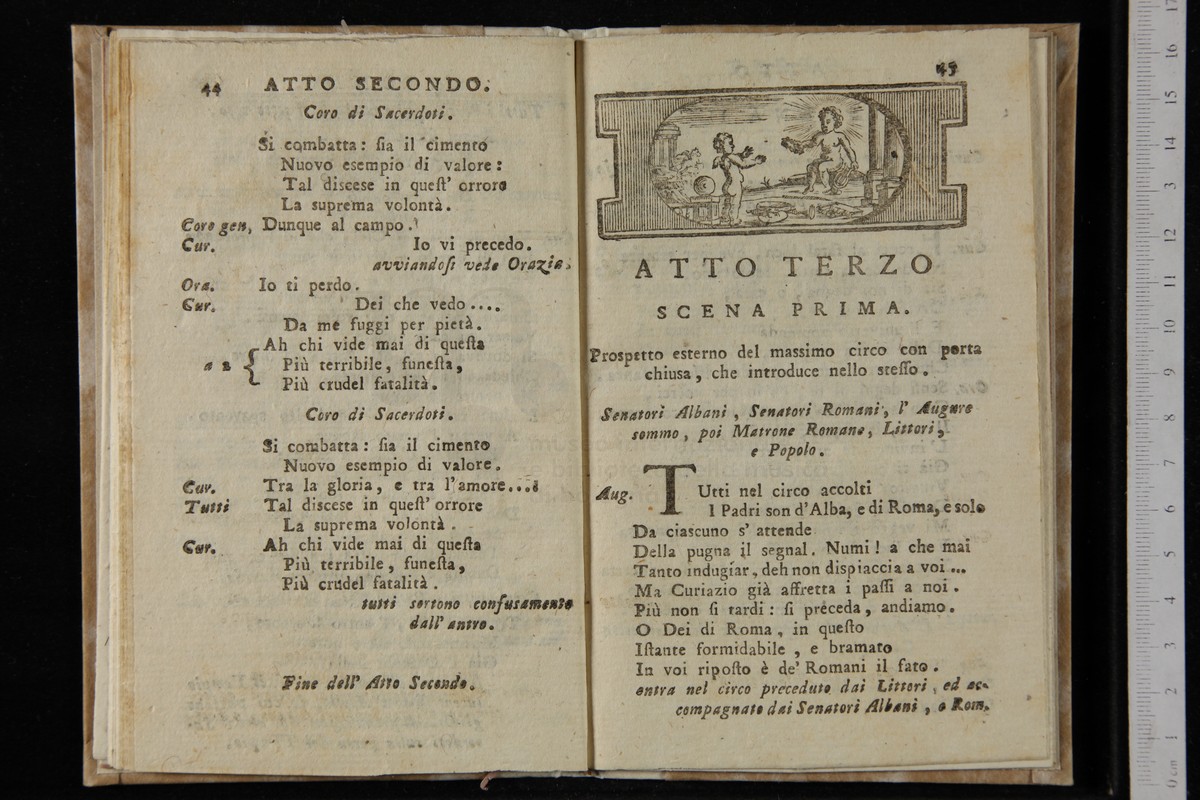 44 ATTO SECONDO.
Coro di Sacerdoti.
Si combatta: ſia il cimento
Nuovo esempio di valore:
Tal discese in queſt' orrore
La suprema volontà.
Coro gen. Dunque al campo.
Cur. Io vi precedo.
avviandoſi vede Orazia.
Ora. Io ti perdo.
Cur. Dei che vedo....
Da me fuggi per pietà.
Ah chi vide mai di queſta
a 2 { Più terribile, funeſta,
Più crudel fatalità.
Coro di Sacerdoti.
Si combatta: ſia il cimento
Nuovo esempio di valore.
Cur. Tra la gloria, e tra l'amore....
Tutti Tal discese in queſt' orrore
La suprema volontà.
Cur. Ah chi vide mai di queſta
Più terribile, funeſta,
Più crudel fatalità.
tutti sortono confusamente
dall' antro.
Fine dell' Atto Secondo.
45
ATTO TERZO
SCENA PRIMA.
Prospetto esterno del massimo circo con porta
chiusa, che introduce nello steſſo.
Senatori Albani, Senatori Romani, l' Augure
sommo, poi Matrone Romane, Littori,
e Popolo.
Aug. TUtti nel circo accolti
I Padri son d'Alba, e di Roma, e solo
Da ciascuno s' attende
Della pugna il segnal. Numi! a che mai
Tanto indugiar, deh non dispiaccia a voi ...
Ma Curiazio già affretta i paſſi a noi.
Più non ſi tardi: ſi preceda, andiamo.
O Dei di Roma, in queſto
Iſtante formidabile, e bramato
In voi ripoſto è de' Romani il fato.
entra nel circo preceduto dai Littori, ed ac-
compagnato dai Senatori Albani, e Rom.
0 cm 1 2 3 4 5 6 7 8 9 10 11 12 13 14 15 16 17